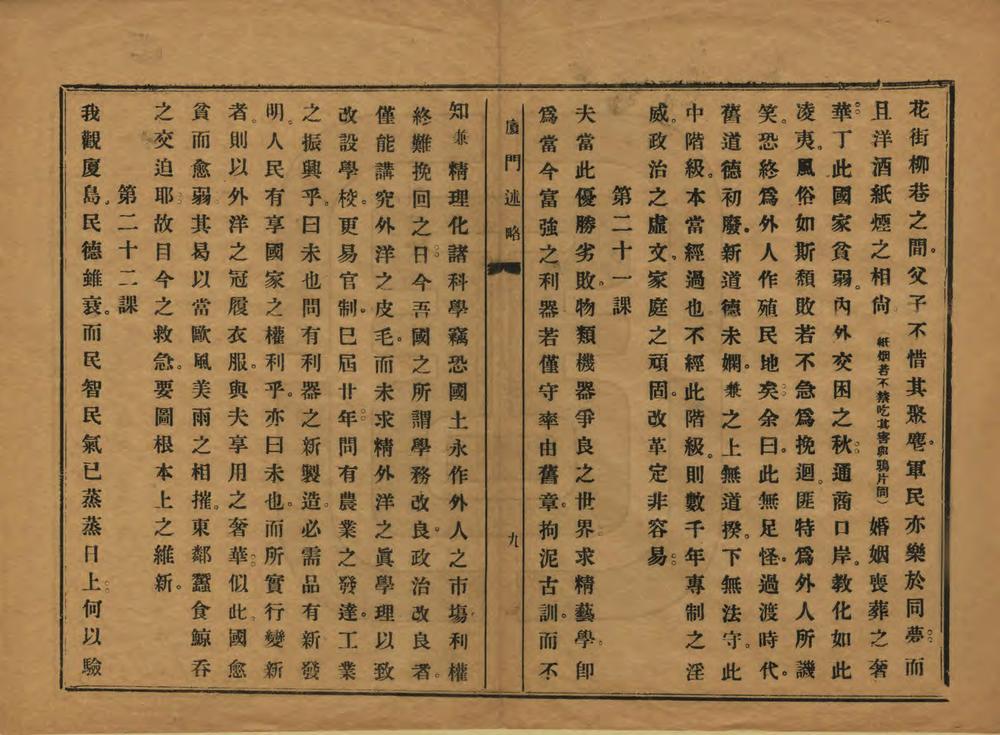 花街柳巷之間。父子不惜其聚麀。軍民亦樂於同夢。而
且洋酒紙煙之相尙（紙烟若不禁吃其害與鴉片同）婚姻喪葬之奢
華。丁此國家貧弱。內外交困之秋。通商口岸。教化如此
凌夷。風俗如斯頹敗若不急爲挽迴。匪特爲外人所譏
笑。恐終爲外人作殖民地矣。余曰。此無足怪。過渡時代。
舊道德初廢。新道德未嫻。兼之上無道揆。下無法守。此
中階級。本當經過也不經此階級。則數千年專制之淫
威。政治之虛文。家庭之頑固。改革定非容易。
第二十一課
夫當此優勝劣敗。物類機器爭良之世界。求精藝學。卽
爲當今富強之利器若僅守率由舊章。拘泥古訓。而不
廈門述略
九
知兼精理化諸科學竊恐國土永作外人之市塲。利權
終難挽回之日。今吾國之所謂學務改良。政治改良者。
僅能講究外洋之皮毛。而未求精外洋之眞學理以致
改設學校。更易官制。已屆廿年。問有農業之發達。工業
之振興乎。曰未也問有利器之新製造。必需品有新發
明。人民有享國家之權利乎。亦曰未也。而所實行變新
者。則以外洋之冠履衣服。與夫享用之奢華。似此國愈
貧而愈弱。其曷以當歐風美雨之相摧。東鄰蠶食鯨吞
之交迫耶。故目今之救急。要圖根本上之維新。
第二十二課
我觀廈島。民德雖衰。而民智民氣已蒸蒸日上。何以驗